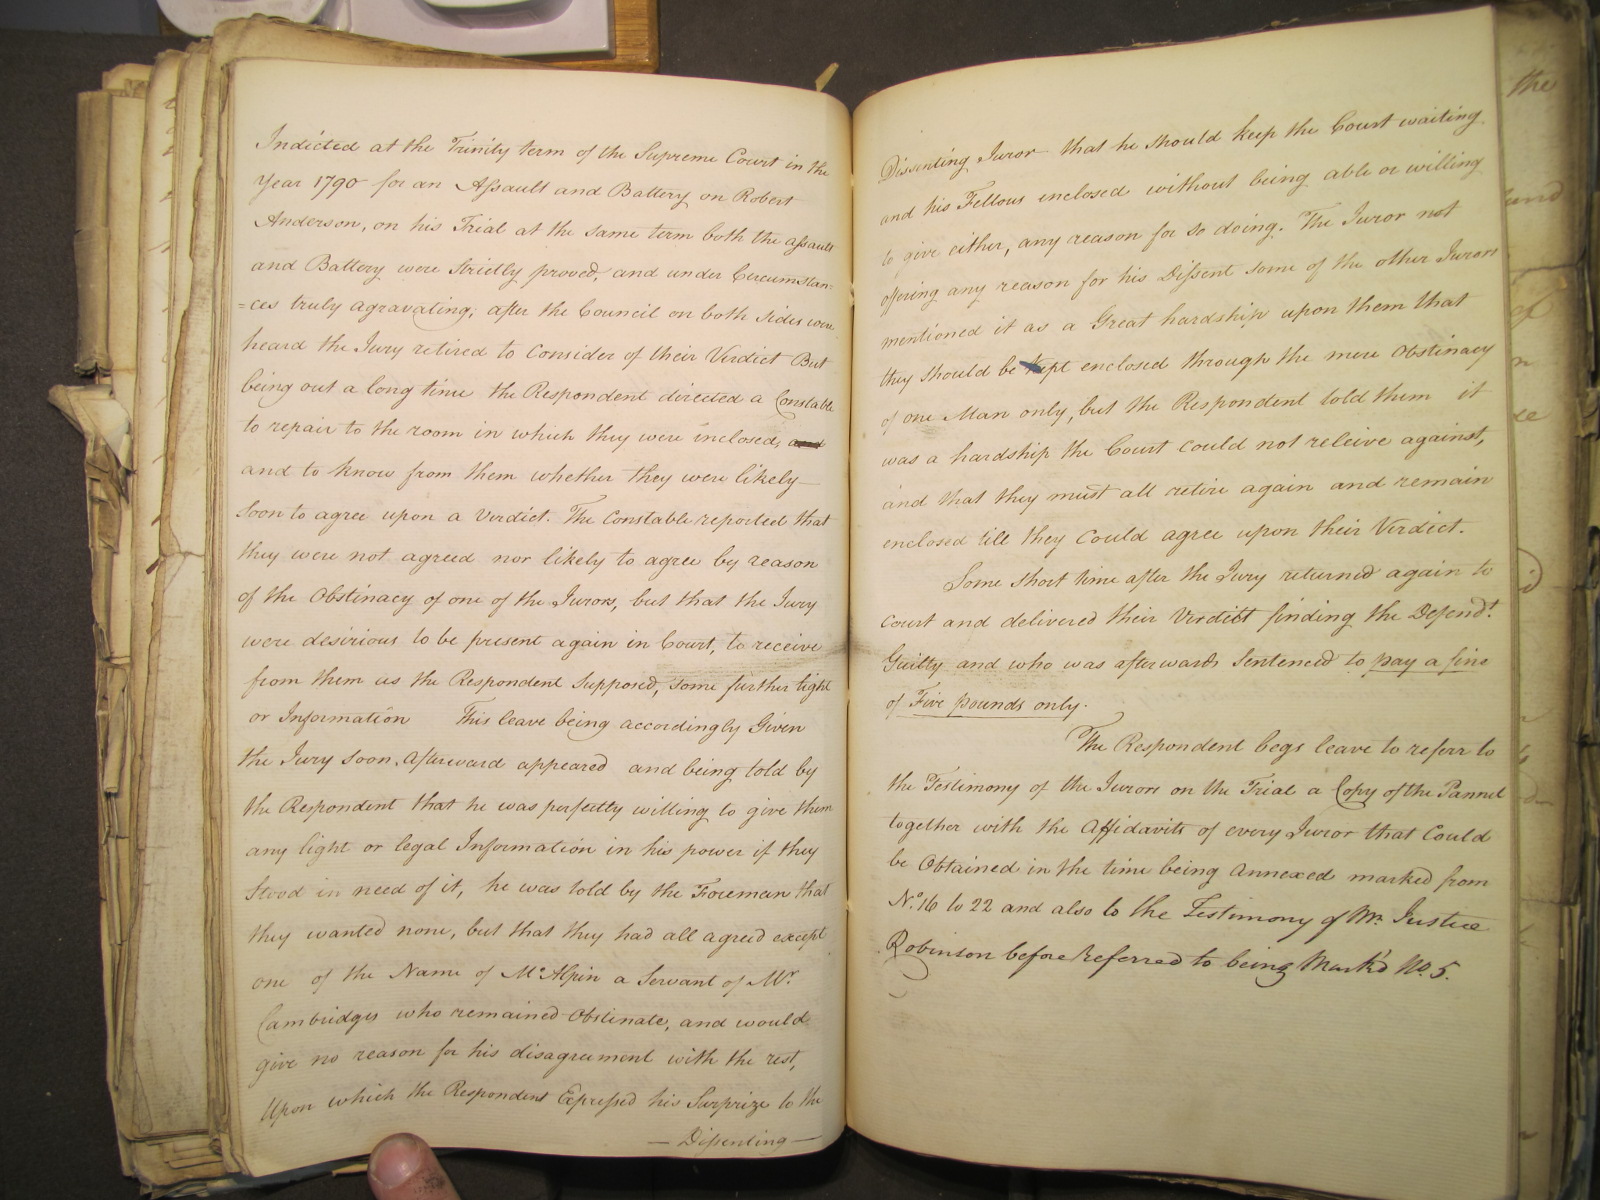 Indicted at the Trinity term of the Supreme Court in the
Year 1790 for an Assault and Battery on Robert
Anderson, on his Trial at the same term both the assault
and Battery were strictly proved, and under Circumstan=
=ces truly agravating; after the Council on both sides were
heard the Jury retired to Consider of their Verdict But
being out a long time the Respondent directed a Constable
to repair to the room in which they were inclosed, and
and to know from them whether they were likely
soon to agree upon a Verdict. The Constable reported that
they were not agreed nor likely to agree by reason
of the Obstinacy of one of the Jurors, but that the Jury
were desirious to be present again in Court, to receive
from them as the Respondent Supposed, some further light
or Information This leave being accordingly Given
the Jury soon Afterward appeared and being told by
the Respondent that he was perfectly willing to give them
any light or legal Information in his power if they
stood in need of it, he was told by the Foreman that
they wanted none, but that they had all agreed except
one of the Name of McAlpin a Servant of Mr.
Cambridges who remained Obstinate, and would
give no reason for his disagreement with the rest,
Upon which the Respondent Expressed his Surprize to the
— Dissenting —
Dissenting Juror that he should keep the Court waiting
and his Fellows enclosed without being able or willing
to give either, any reason for so doing. The Juror not
offering any reason for his Dissent some of the other Jurors
mentioned it as a Great hardship upon them that
they should be kept enclosed through the mere Obstinacy
of one Man only, but the Respondent told them it
was a hardship the Court could not releive against,
and that they must all retire again and remain
enclosed till they Could agree upon their Verdict.
Some short time after the Jury returned again to
Court and delivered their Verdict finding the Defend.t
Guilty and who was afterwards Sentenced to pay a fine
of Five pounds only.
The Respondent begs leave to referr to
the Testimony of the Jurors on the Trial a Copy of the Pannel
together with the Affidavits of every Juror that Could
be Obtained in the time being Annexed marked from
No. 16 to 22 and also to the Testimony of Mr. Justice
Robinson before referred to being Mark'd No. 5.
the